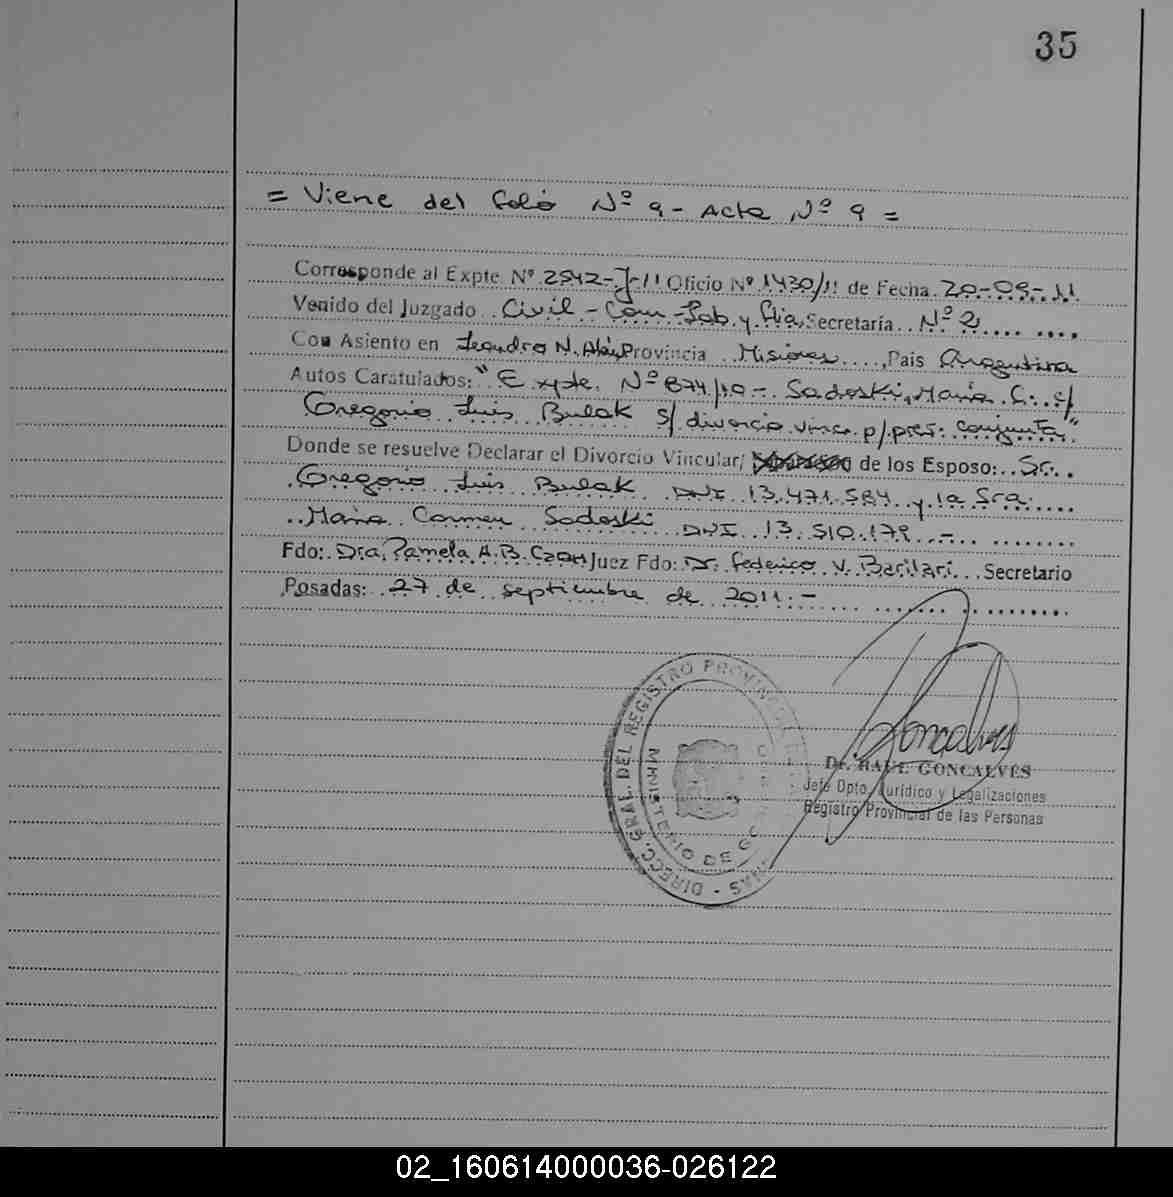 35
= Viene del folio Nº 9 - Acta Nº 9 =
Corresponde al Expte Nº 2542-J-11 Oficio Nº 1430/11 de Fecha 20-09-11
Venido del Juzgado Civil - Com - Lab. y Flia, Secretaría Nº 2
Con Asiento en Leandro N. Alem, Provincia Misiones, País Argentina
Autos Caratulados: "Expte. Nº 874/10 - Sadoski, María C. c/
Gregorio Luis Bulak s/ divorcio vinc. p/ pres. conjunta"
Donde se resuelve Declarar el Divorcio Vincular/ de los Esposo: Sr.
Gregorio Luis Bulak DNI 13.471.584 y la Sra.
María Carmen Sadoski DNI 13.510.179 -
Fdo: Dra. Pamela A. B. Juez Fdo: Dr. Federico V. Barilari Secretario
Posadas: 27 de septiembre de 2011.-
DIRECC. GRAL. DEL REGISTRO PROVINCIAL
MINISTERIO DE GO
Goncalves
Dr. RAUL GONCALVES
Jefe Dpto. Jurídico y Legalizaciones
Registro Provincial de las Personas
02_160614000036-026122